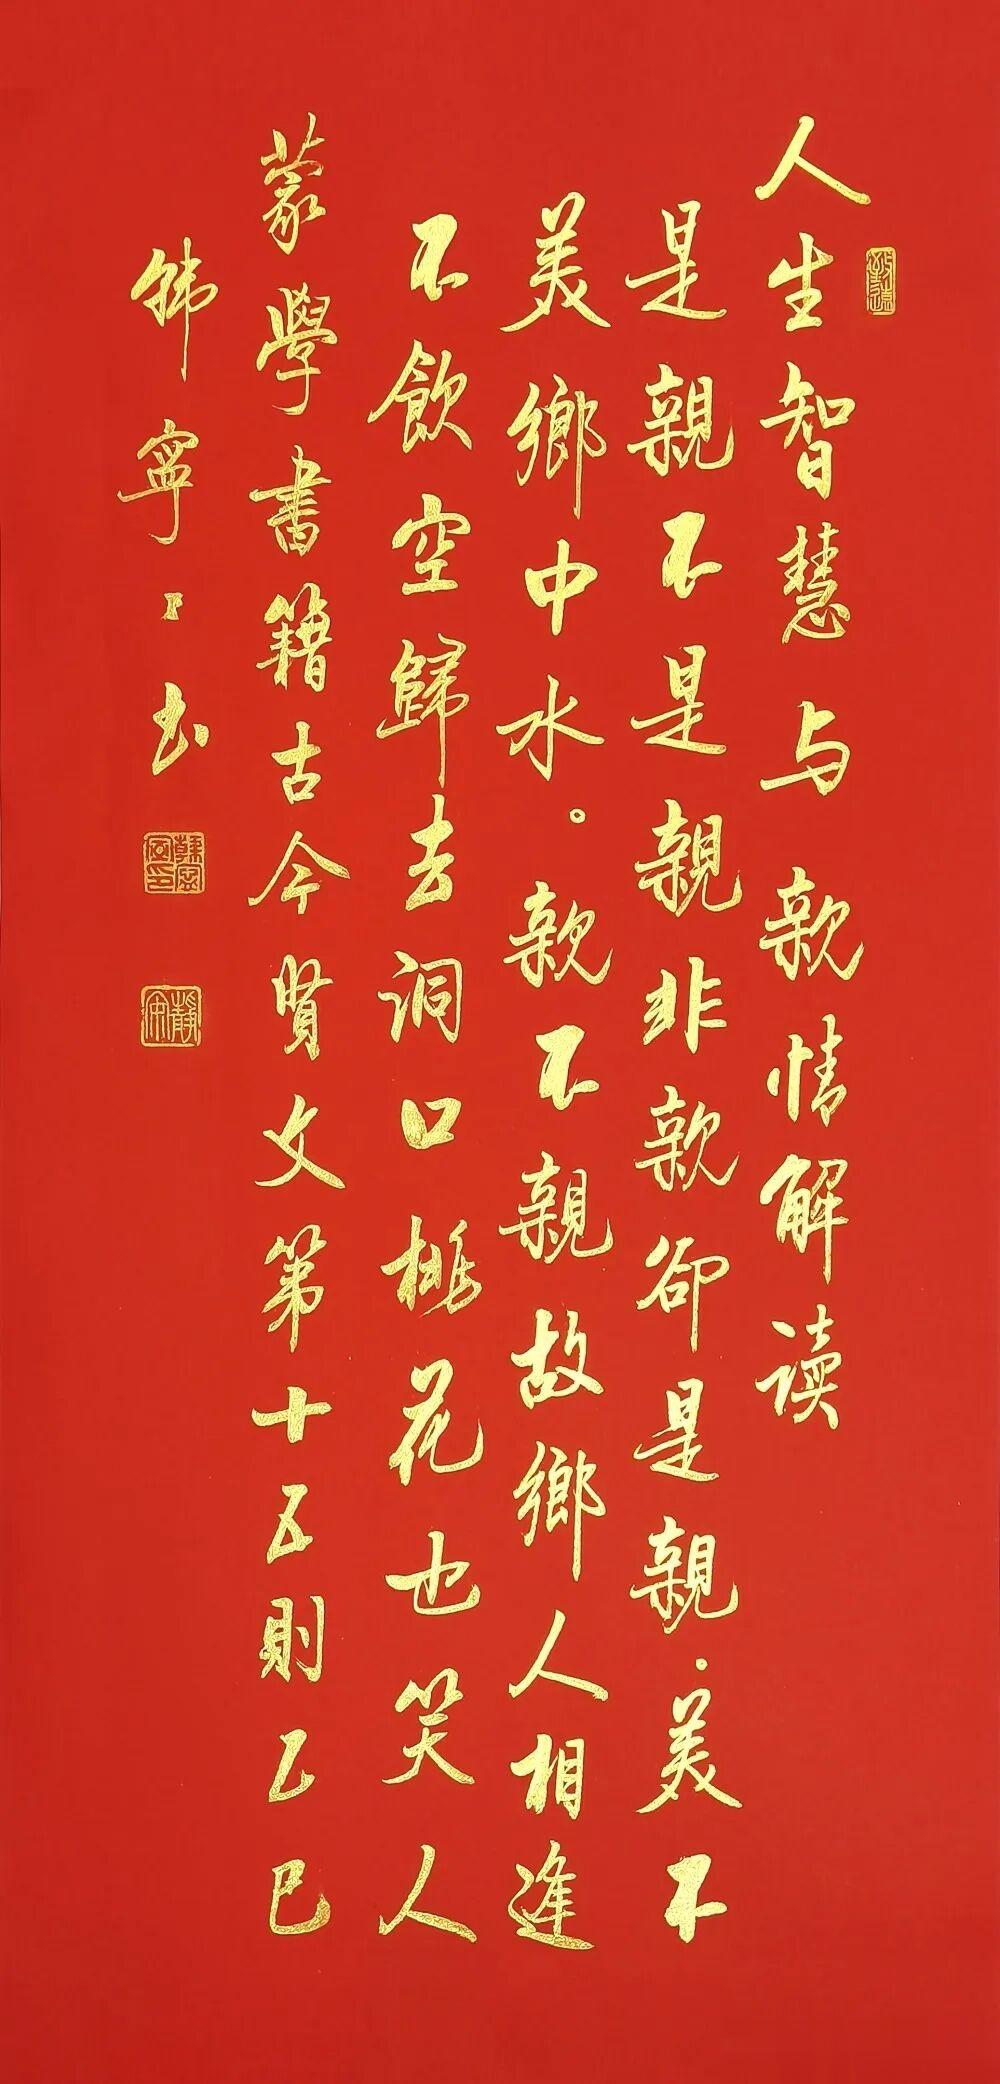 人生智慧与款情解读
是親不是親非款卻是親.美不
美鄉中水。款不親故鄉人相逢
不飲空歸去洞口桃花也笑人
蒙學書籍古今賢文第十五則乙巳
韩寧〻书